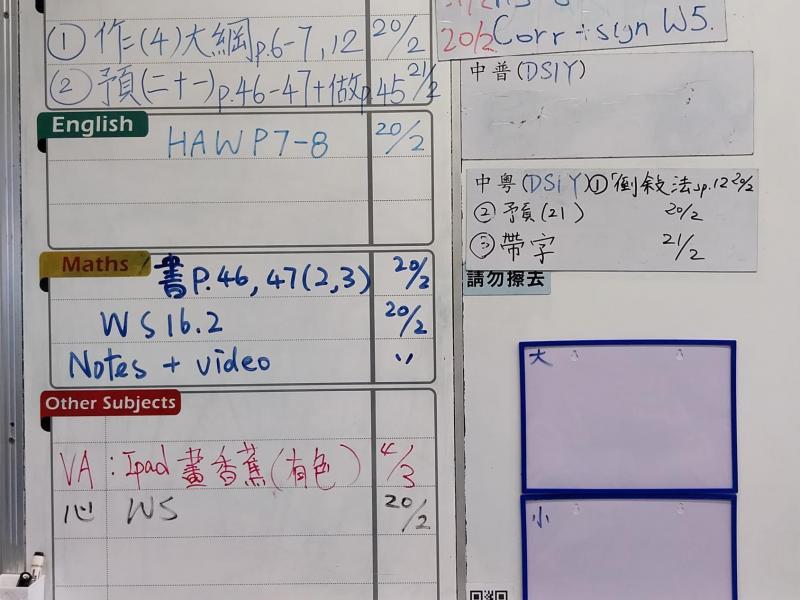 ① 作=(4)大綱p.6-7,12 20/2
② 預(二十一)p.46-47+做p.45 21/2
English
HAWP7-8 20/2
Maths
書P.46,47(2,3) 20/2
WS16.2 20/2
Notes + video 〃
Other Subjects
VA:Ipad 畫香蕉(有色) 4/3
心 WS 20/2
20/2 Corr + sign W5.
中普(DSIY)
中粵(DSiY)①「倒敘法」p.12 20/2
② 預(21) 20/2
③ 帶字 21/2
請勿擦去
大
小